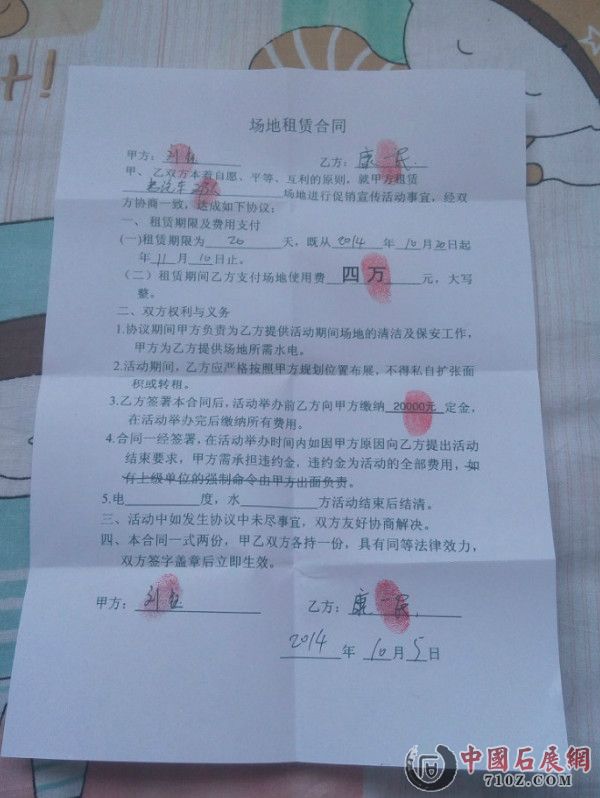 场地租赁合同
甲方：刘钰 乙方：康一民
甲、乙双方本着自愿、平等、互利的原则，就甲方租赁
老汽车 场地进行促销宣传活动事宜，经双
方协商一致，达成如下协议：
一、 租赁期限及费用支付
(一)租赁期限为 20 天，既从 2014 年 10 月20日起
年 11 月 10日止。
（二）租赁期间乙方支付场地使用费 四万 元，大写
整。
二、双方权利与义务
1.协议期间甲方负责为乙方提供活动期间场地的清洁及保安工作，
甲方为乙方提供场地所需水电。
2.活动期间，乙方应严格按照甲方规划位置布展，不得私自扩张面
积或转租。
3.乙方签署本合同后，活动举办前乙方向甲方缴纳 20000元 定金，
在活动举办完后缴纳所有费用。
4.合同一经签署，在活动举办时间内如因甲方原因向乙方提出活动
结束要求，甲方需承担违约金，违约金为活动的全部费用，如
有上级单位的强制命令由甲方出面负责。
5.电 度，水 方活动结束后结清。
三、活动中如发生协议中未尽事宜，双方友好协商解决。
四、本合同一式两份，甲乙双方各持一份，具有同等法律效力，
双方签字盖章后立即生效。
甲方：刘钰 乙方：康一民
2014 年 10 月 5 日
中國石展網
710Z.COM